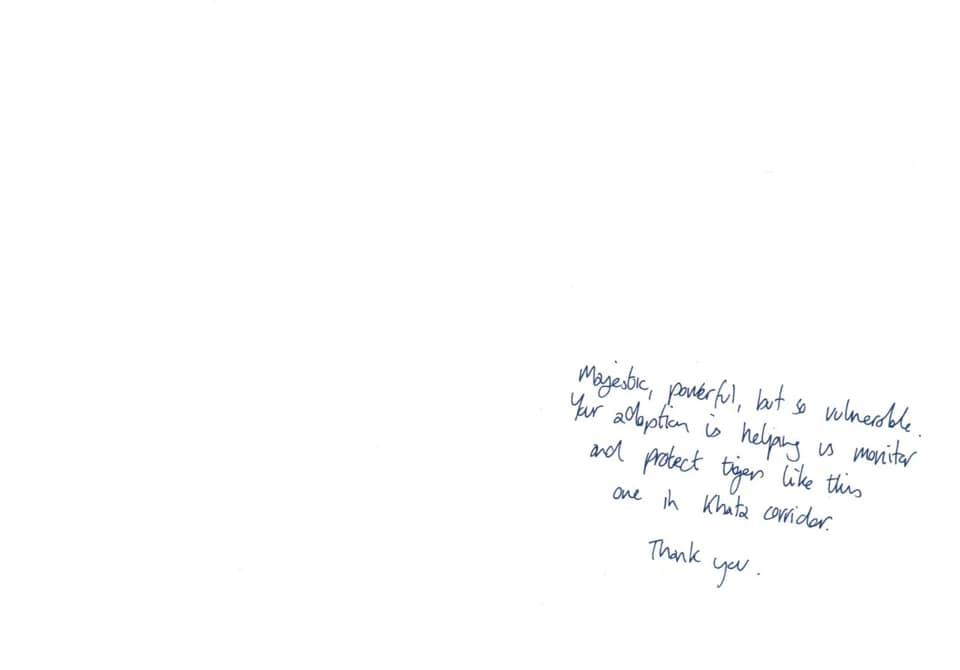 Majestic, powerful, but so vulnerable.
Your adoption is helping us monitor
and protect tigers like this
one in Khata corridor.
Thank you.